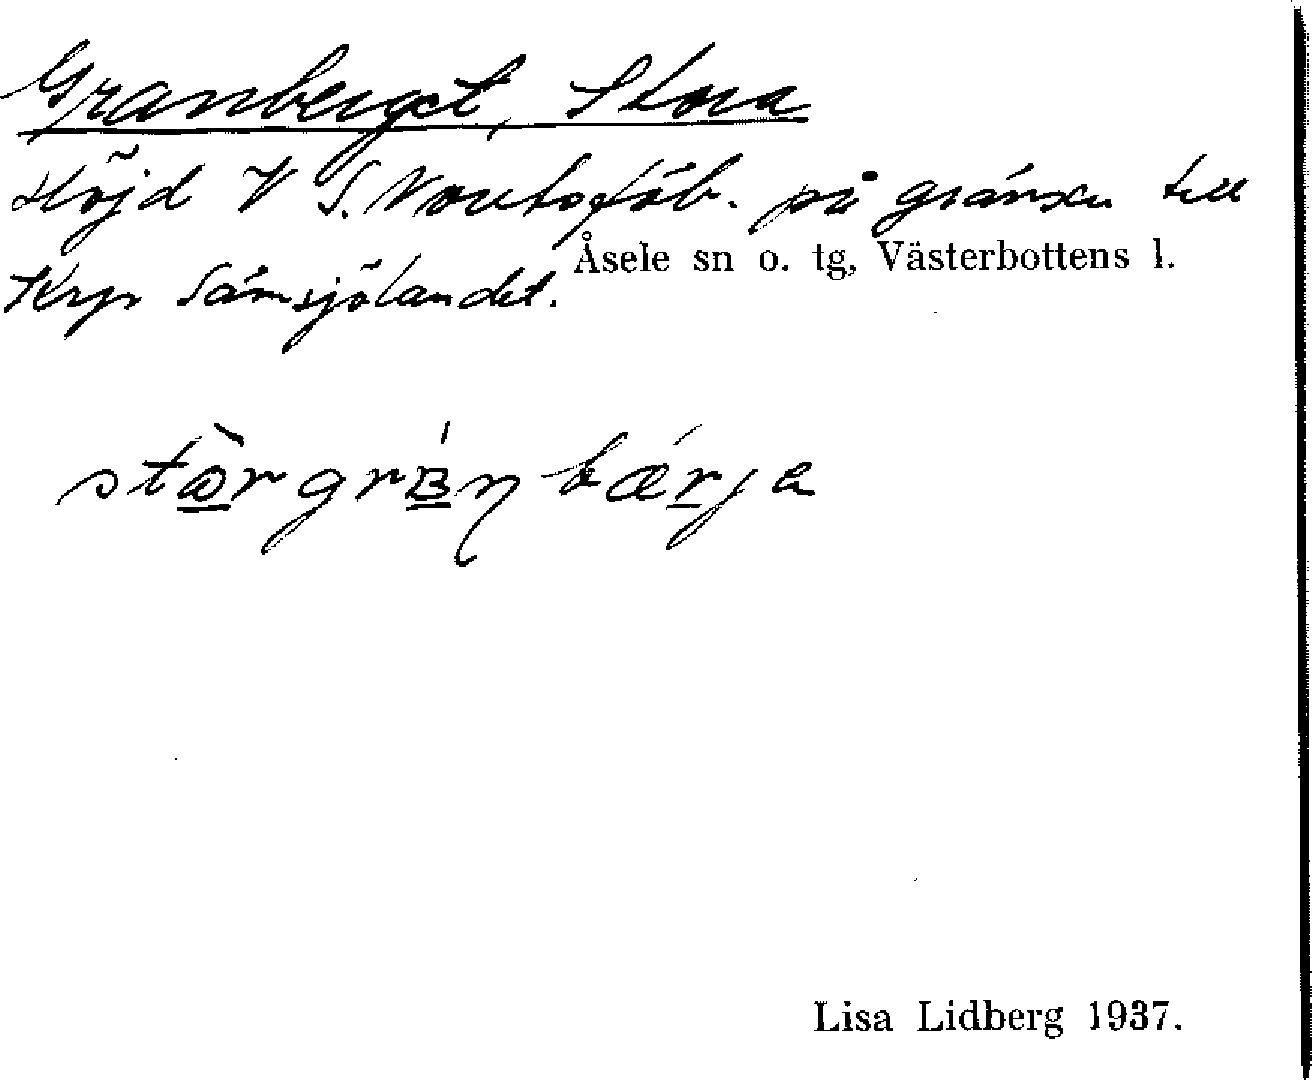 Granberget, Stora
Höjd V S. Nordsjöb. på gränsen till
Åsele sn o. tg, Västerbottens l.
Krp Sämsjölandet.
stòrgránbærja
Lisa Lidberg 1937.